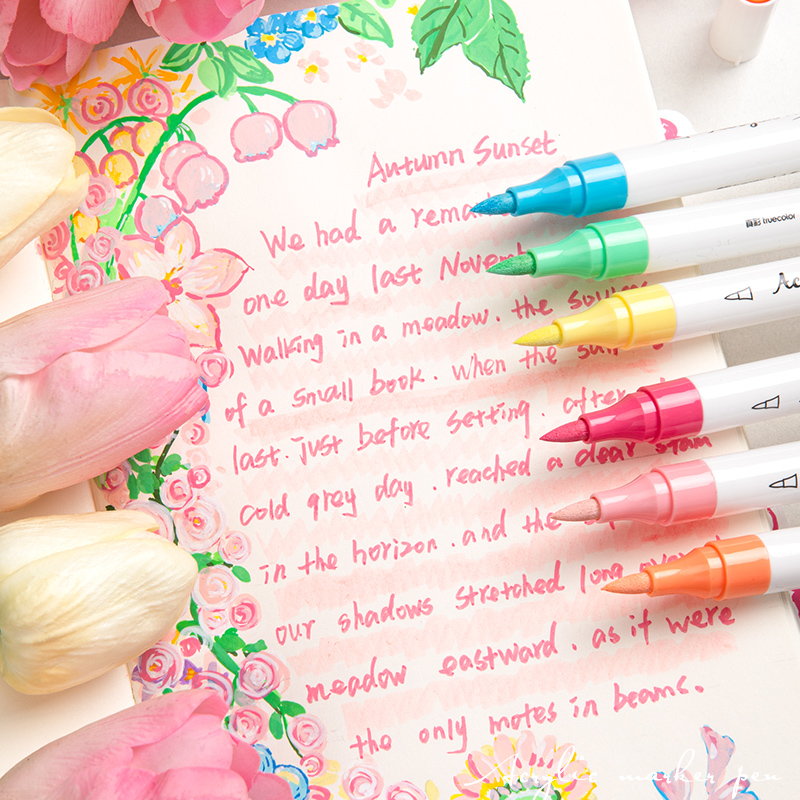 Autumn Sunset
We had a
one day last
Walking in a meadow. the
of a small book. when the
last. just before setting. after
cold grey day . reached a clear
in the horizon . and the
our shadows stretched long
meadow eastward . as if were
the only motes in beams.
真彩 truecolor
Acrylic marker pen